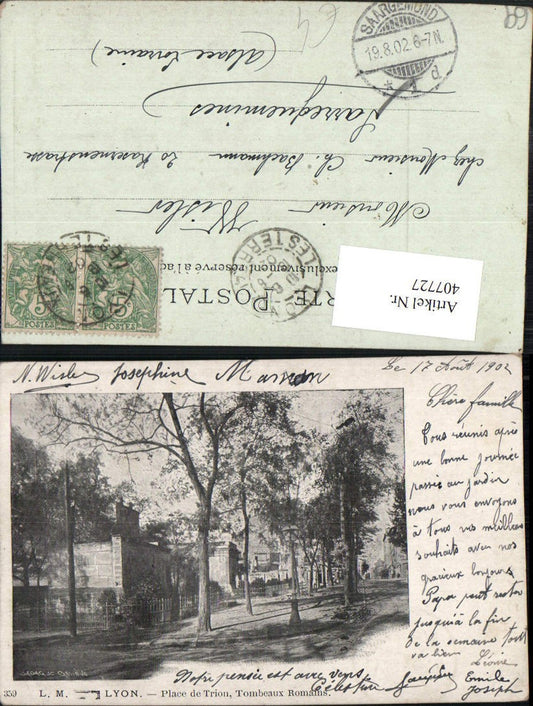 CARTE POSTALE
exclusivement réservé à l'ad
Monsieur
Wisler
chez Monsieur Ch. Bachmann 20 Kasernenstrasse
Sarreguemines
(Alsace Lorraine)
SAARGEMÜND
19.8.02 6-7N.
LYON
LES TERREAUX
5 5
POSTES POSTES
Artikel Nr.
407727
N. Wisler Josephine
Le 17 Août 1902
Chère famille
Tous réunis après
une bonne journée
passée au jardin
nous vous envoyons
à tous nos meilleurs
souhaits avec nos
gracieux bonjours
Papa peut rester
jusqu'à la fin
de la semaine tout
va bien
Notre pensée est avec vous
Célestine Joséphine Emile
Joseph
359 L. M. LYON. — Place de Trion, Tombeaux Romains.